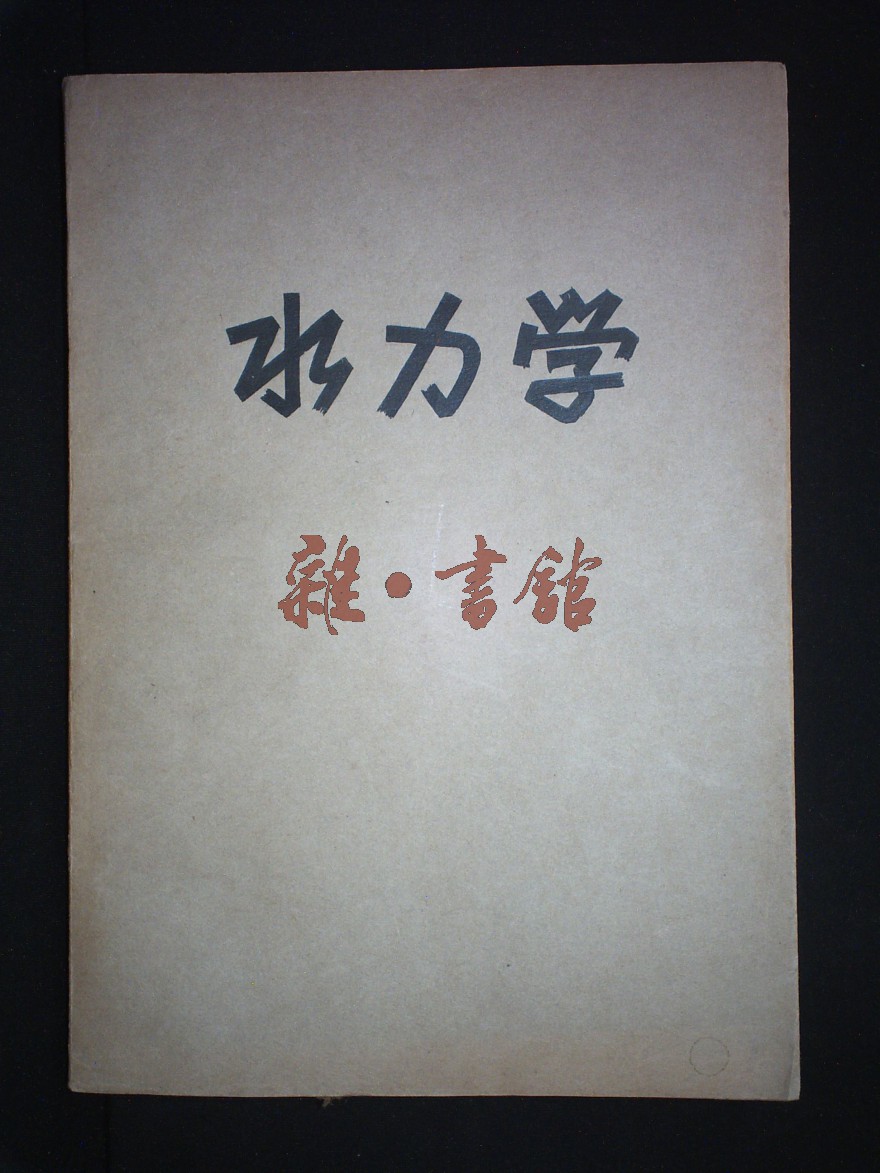 水力学
雜·書館